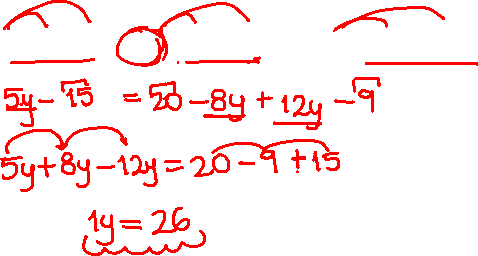 5y - 15 = 20 - 8y + 12y - 9
5y + 8y - 12y = 20 - 9 + 15
1y = 26